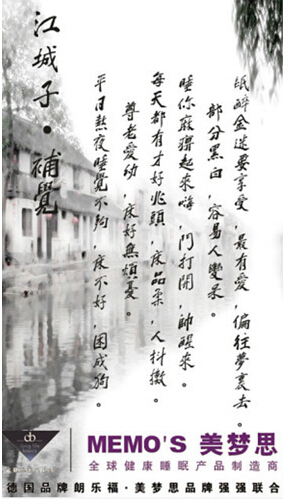 江城子·補覺
平日熬夜睡覺不夠，床不好，困成狗。
尊老愛幼，床好無煩憂。
每天都有才好兆頭，床品柔，人抖擻。
睡你麻痹起來嗨，門打開，帥醒來。
部分黑白，容易人變呆。
紙醉金迷要享受，最有愛，偏往夢裏去。
MEMO'S 美梦思
全球健康睡眠产品制造商
德国品牌朗乐福·美梦思品牌强强联合